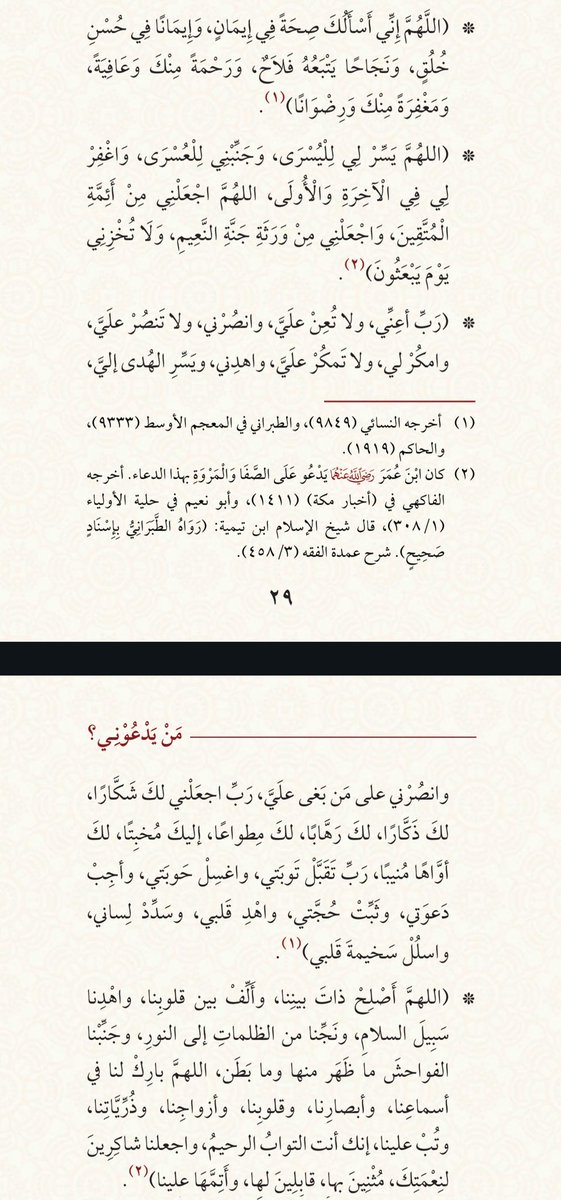 * (اللَّهُمَّ إِنِّي أَسْأَلُكَ صِحَةً فِي إِيمَانٍ، وَإِيمَانًا فِي حُسْنِ
خُلُقٍ، وَنَجَاحًا يَتْبَعُهُ فَلَاحٌ، وَرَحْمَةً مِنْكَ وَعَافِيَةً،
وَمَغْفِرَةً مِنْكَ وَرِضْوَانًا)(١).
* (اللهُمَّ يَسِّرْ لِي لِلْيُسْرَى، وَجَنِّبْنِي لِلْعُسْرَى، وَاغْفِرْ
لِي فِي الْآخِرَةِ وَالْأُولَى، اللهُمَّ اجْعَلْنِي مِنْ أَئِمَّةِ
الْمُتَّقِينَ، وَاجْعَلْنِي مِنْ وَرَثَةِ جَنَّةِ النَّعِيمِ، وَلَا تُخْزِنِي
يَوْمَ يَبْعَثُونَ)(٢).
* (رَبِّ أعِنِّي، ولا تُعِنْ علَيَّ، وانصُرْني، ولا تَنصُرْ علَيَّ،
وامكُرْ لي، ولا تَمكُرْ علَيَّ، واهدِني، ويَسِّرِ الهُدى إليَّ،
(١) أخرجه النسائي (٩٨٤٩)، والطبراني في المعجم الأوسط (٩٣٣٣)،
والحاكم (١٩١٩).
(٢) كان ابْنَ عُمَرَ رَضِيَ اللَّهُ عَنْهُمَا يَدْعُو عَلَى الصَّفَا وَالْمَرْوَةِ بهذا الدعاء. أخرجه
الفاكهي في (أخبار مكة) (١٤١١)، وأبو نعيم في حلية الأولياء
(٣٠٨/١)، قال شيخ الإسلام ابن تيمية: (رَوَاهُ الطَّبَرَانِيُّ بِإِسْنَادٍ
صَحِيحٍ). شرح عمدة الفقه (٤٥٨/٣).
٢٩
مَنْ يَدْعُوْنِي؟
وانصُرْني على مَن بَغى علَيَّ، رَبِّ اجعَلْني لكَ شَكَّارًا،
لكَ ذَكَّارًا، لكَ رَهَّابًا، لكَ مِطواعًا، إليكَ مُخبِتًا، لكَ
أوَّاهًا مُنيبًا، رَبِّ تَقَبَّلْ تَوبَتي، واغسِلْ حَوبَتي، وأجِبْ
دَعوَتي، وثَبِّتْ حُجَّتي، واهْدِ قَلبي، وسَدِّدْ لِساني،
واسلُلْ سَخيمةَ قَلبي)(١).
* (اللهمَّ أَصْلِحْ ذاتَ بينِنا، وأَلِّفْ بين قلوبِنا، واهْدِنا
سَبِيلَ السلامِ، ونَجِّنا من الظلماتِ إلى النورِ، وجَنِّبْنا
الفواحشَ ما ظَهَر منها وما بَطَن، اللهمَّ بارِكْ لنا في
أسماعِنا، وأبصارِنا، وقلوبِنا، وأزواجِنا، وذُرِّيَّاتِنا،
وتُبْ علينا، إنك أنت التوابُ الرحيمُ، واجعلنا شاكِرِينَ
لنِعْمَتِكَ، مُثْنِينَ بِها، قابِلِينَ لها، وأَتِمَّهَا علينا)(٢).